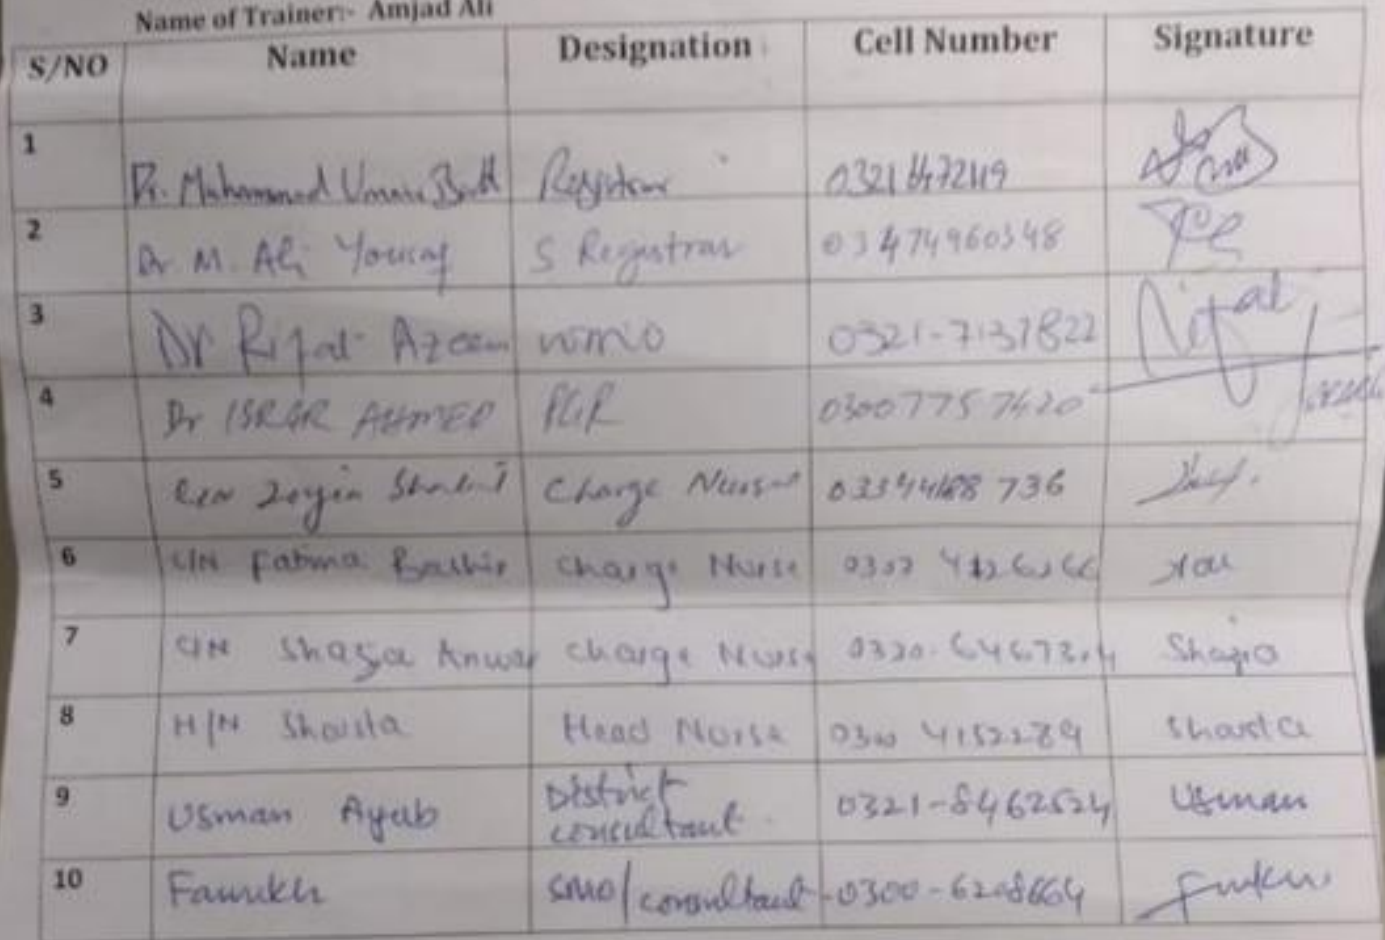 Name of Trainer:- Amjad Ali
S/NO Name Designation Cell Number Signature
1 Dr. Muhammad Butt Registrar
2 Dr. M. Ali Yousaf S Registrar 03474960348
3 Dr Rifat Azeem WMO 0321-7137822 Rifat
4 Dr ISRAR AHMED PGR 03007757420
5 Charge Nurse 03344188736
6 C/N Fatima Bashir Charge Nurse
7 C/N Shazia Anwar Charge Nurse Shazia
8 H/N Shaista Head Nurse 0300 4152289 Shaista
9 Usman Ayub District
consultant 0321-8462524 Usman
10 Farrukh SMO/consultant